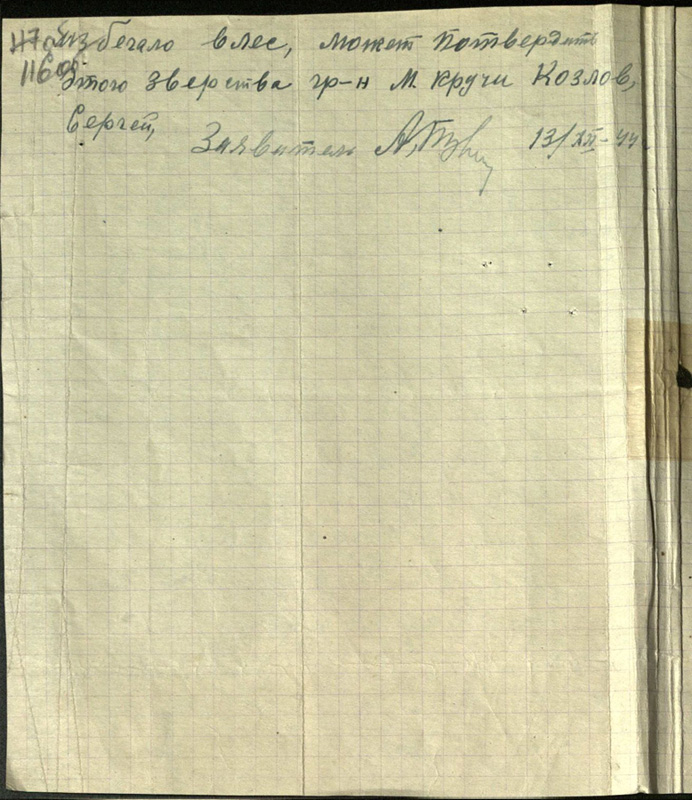 117об
116об
избегало влес, может потвердить
этого зверства гр-н М. Кручи Козлов,
Сергей,
Заявитель А, 13/XII-44